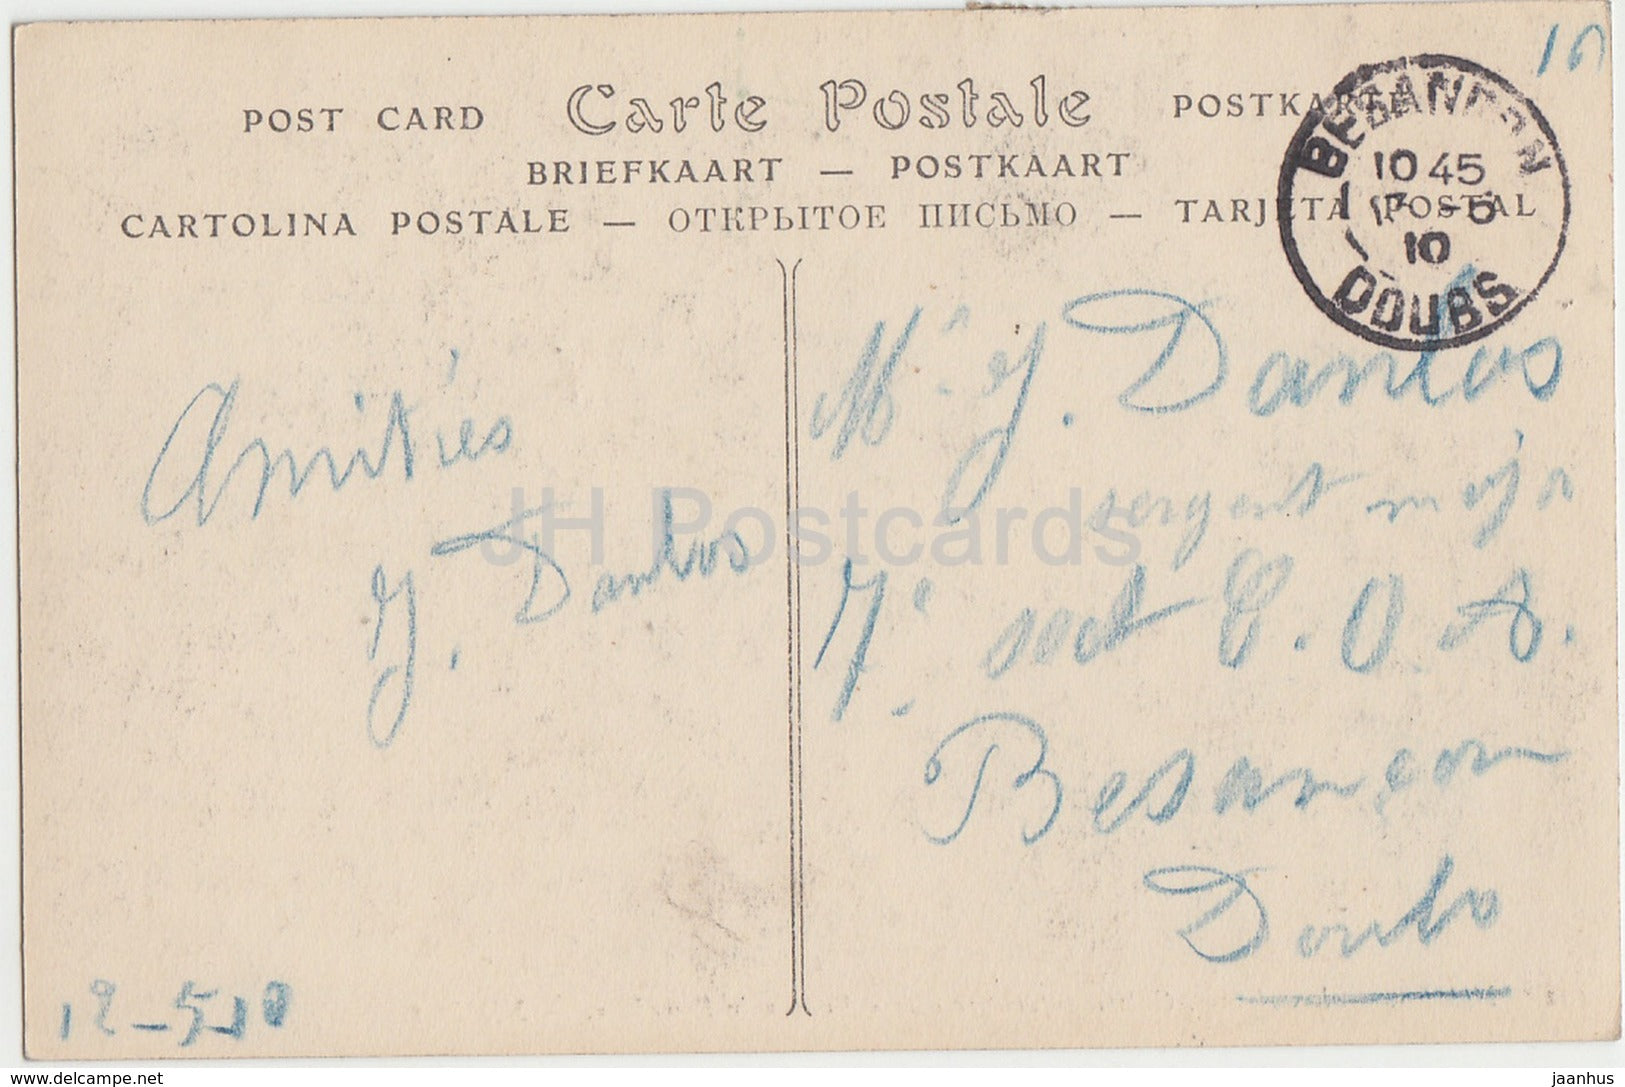 POST CARD Carte Postale POSTKARTE
BRIEFKAART — POSTKAART
CARTOLINA POSTALE — ОТКРЫТОЕ ПИСЬМО — TARJETA POSTAL
BESANCON
10 45
10
DOUBS
Amitiés
J. Danlos
12-5-10
Mr J. Danlos
sergent major
7e sect C. O. A.
Besançon
Doubs
JH Postcards
delcampe.net
jaanhus